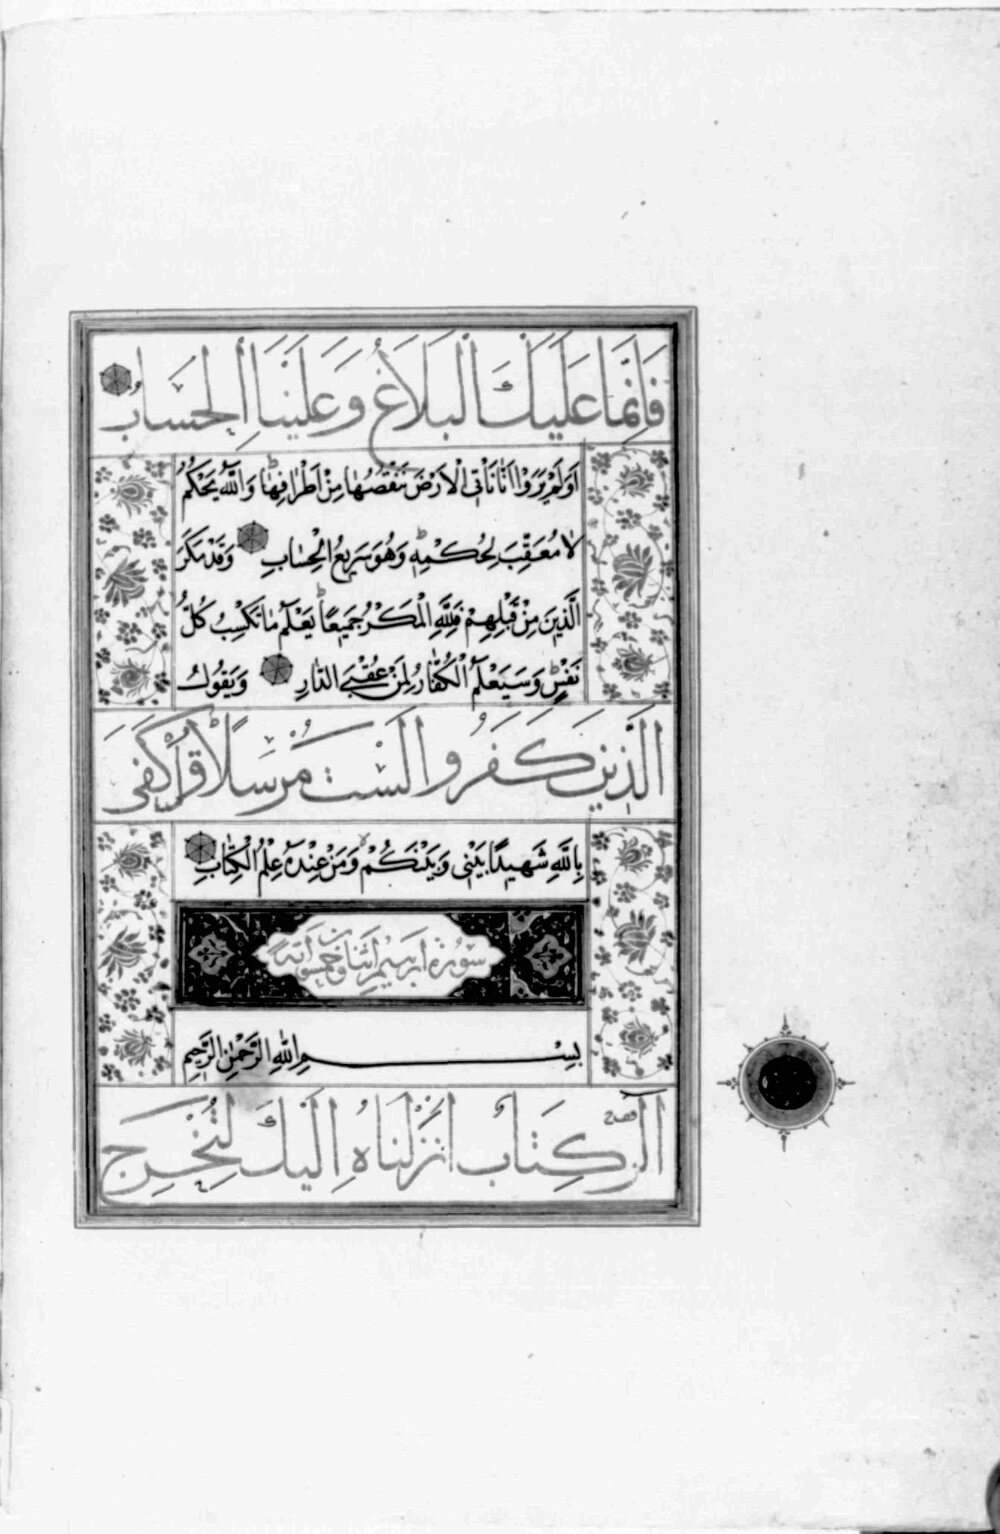 فَاِنَّمَا عَلَيْكَ الْبَلَاغُ وَعَلَيْنَا الْحِسَابُ
اَوَلَمْ يَرَوْا اَنَّا نَأْتِى الْاَرْضَ نَنْقُصُهَا مِنْ اَطْرَافِهَا وَاللّٰهُ يَحْكُمُ
لَا مُعَقِّبَ لِحُكْمِهٖ وَهُوَ سَرِيعُ الْحِسَابِ وَقَدْ مَكَرَ
الَّذِينَ مِنْ قَبْلِهِمْ فَلِلّٰهِ الْمَكْرُ جَمِيعًا يَعْلَمُ مَا تَكْسِبُ كُلُّ
نَفْسٍ وَسَيَعْلَمُ الْكُفَّارُ لِمَنْ عُقْبَى الدَّارِ وَيَقُولُ
الَّذِينَ كَفَرُوا لَسْتَ مُرْسَلًا قُلْ كَفَى
بِاللّٰهِ شَهِيدًا بَيْنِى وَبَيْنَكُمْ وَمَنْ عِنْدَهُ عِلْمُ الْكِتَابِ
سورة ابرهيم اثنان وخمسون اية
بِسْمِ اللّٰهِ الرَّحْمٰنِ الرَّحِيمِ
الٓرٰ كِتَابٌ اَنْزَلْنَاهُ اِلَيْكَ لِتُخْرِجَ